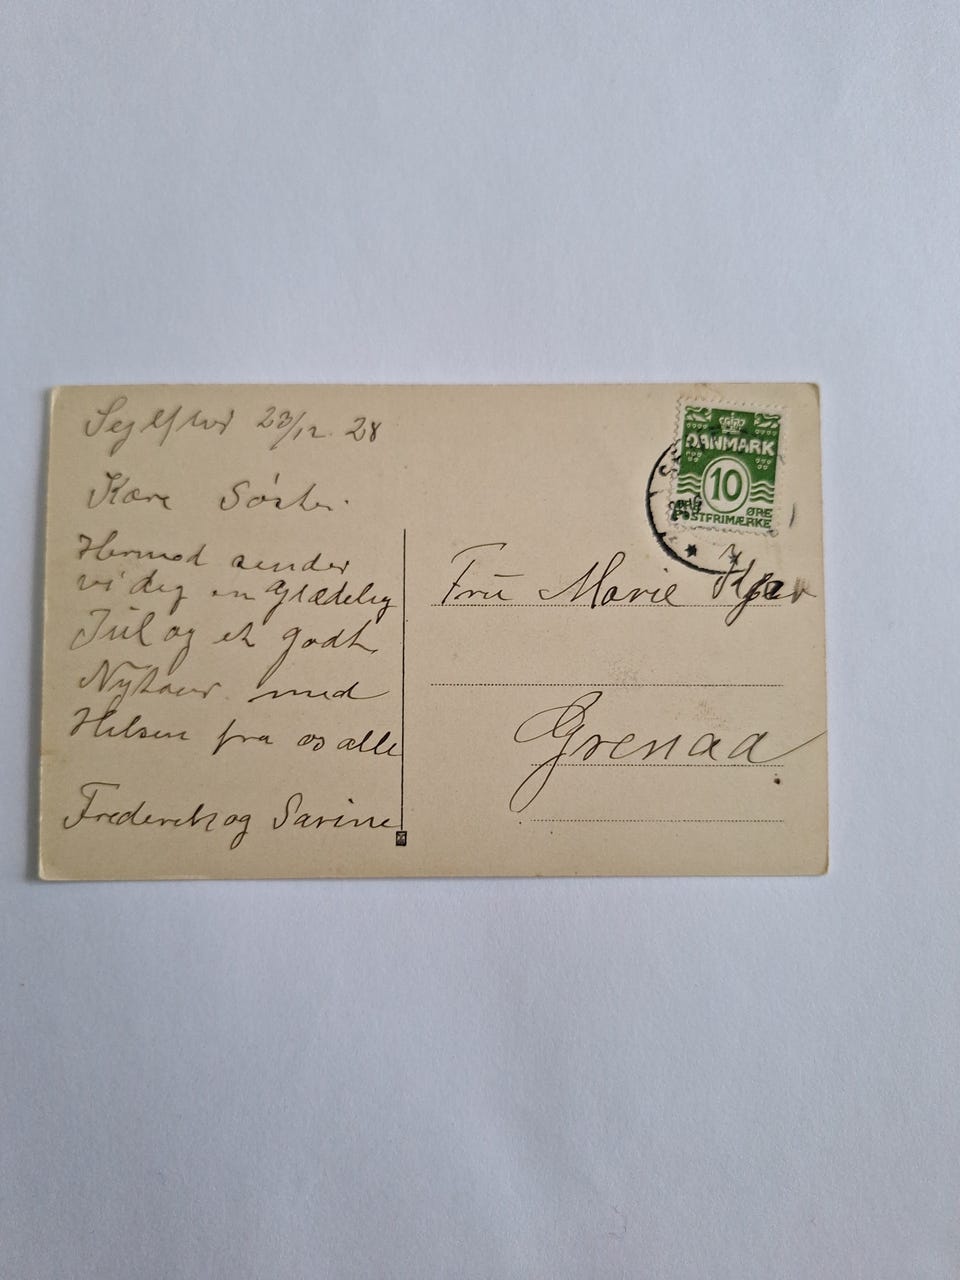 23/12. 28
Kære Søster.
Hermed sender
vi dig en Glædelig
Jul og et godt
Nytaar med
Hilsen fra os alle
Frederik og Sarine
DANMARK
10
ØRE
POSTFRIMÆRKE
Fru Marie
Grenaa